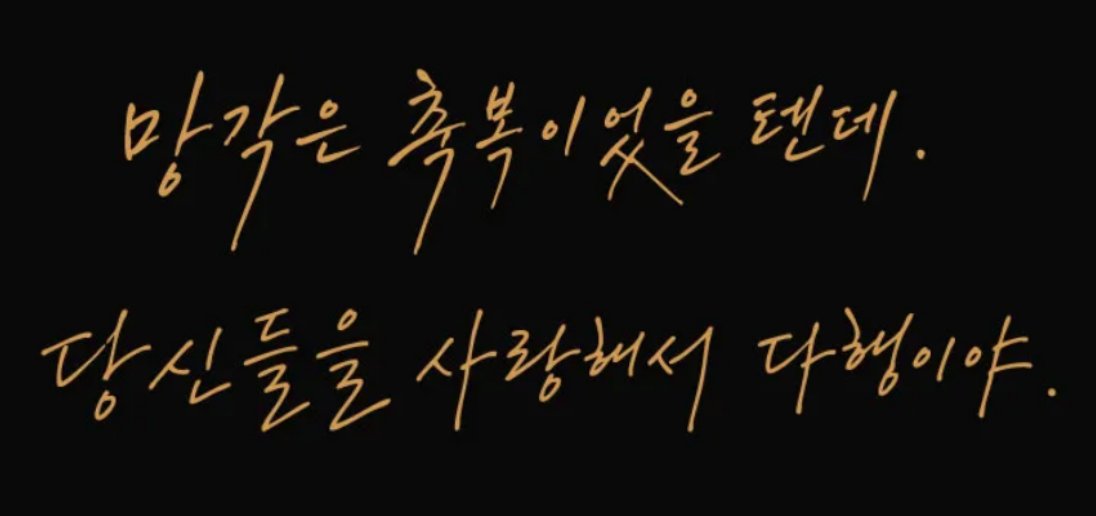 망각은 축복이었을 텐데.
당신들을 사랑해서 다행이야.